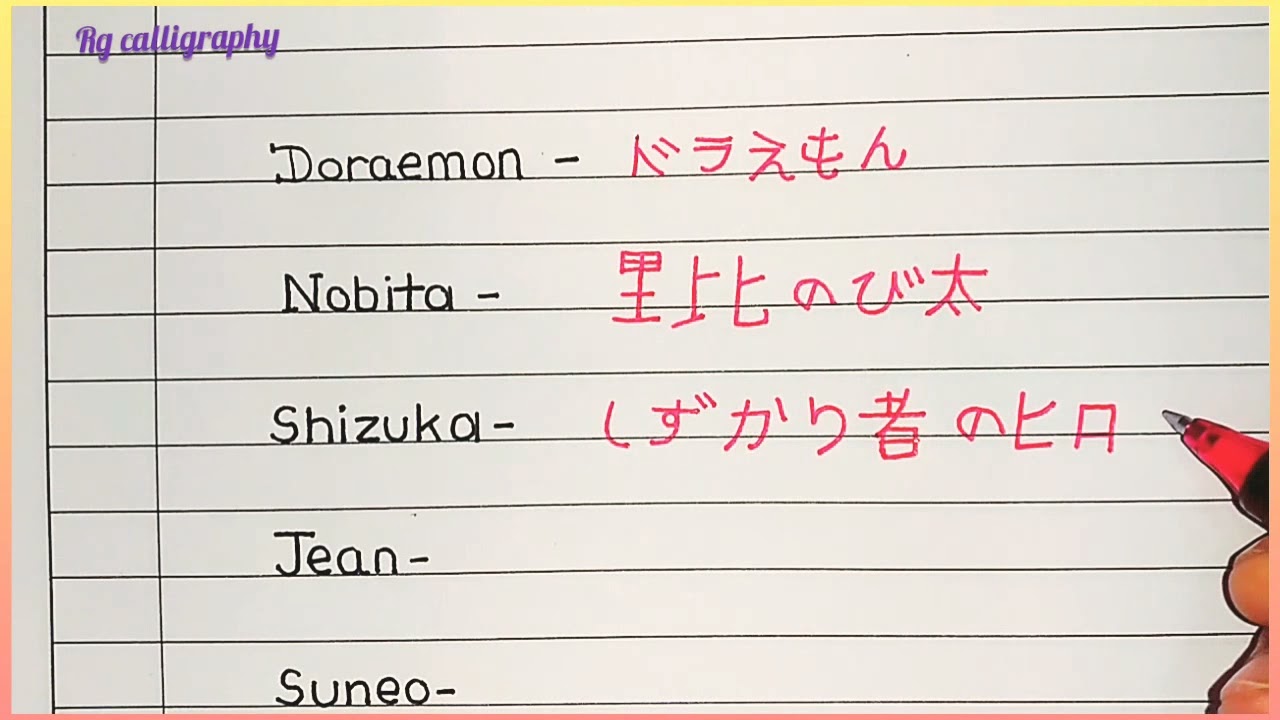 Rg calligraphy
Doraemon - ドラえもん
Nobita - 里比のび太
Shizuka- しずかり者のヒロ
Jean-
Suneo-